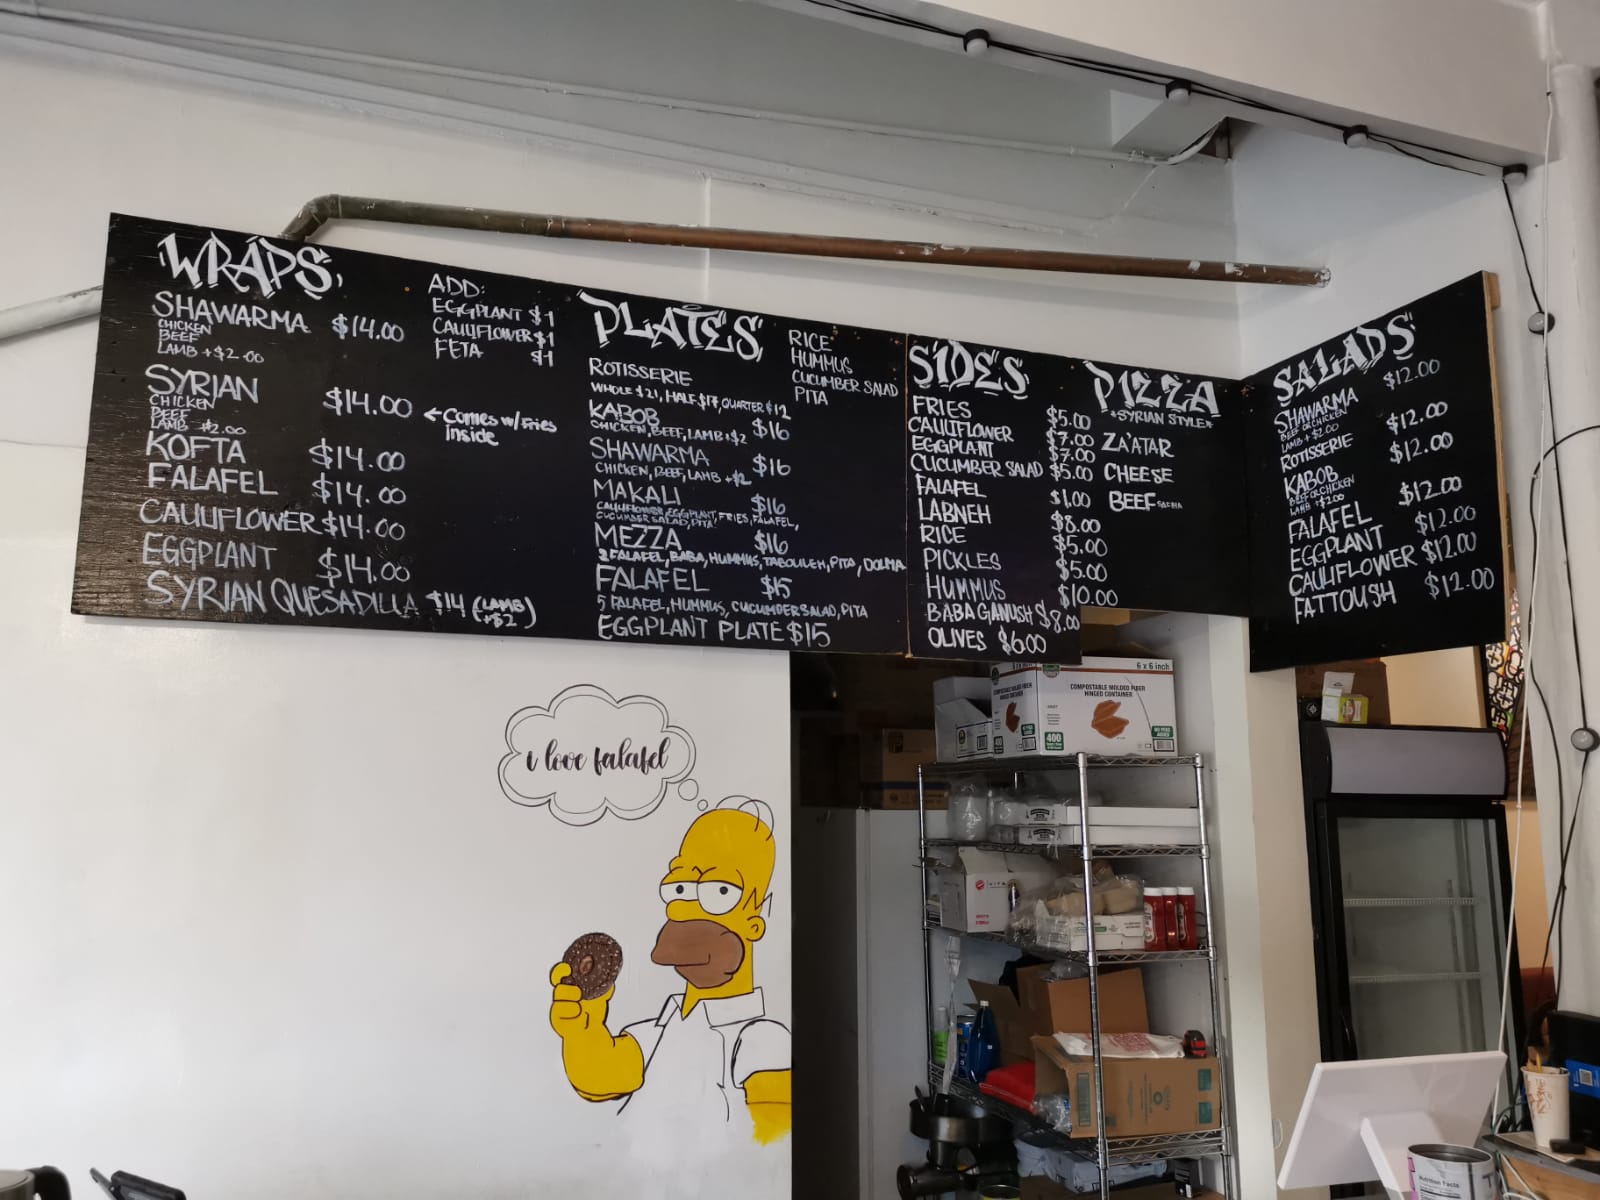 WRAPS
SHAWARMA $14.00
CHICKEN
BEEF
LAMB +$2.00
SYRIAN $14.00 ← Comes w/ Fries
Inside
CHICKEN
BEEF
LAMB +$2.00
KOFTA $14.00
FALAFEL $14.00
CAULIFLOWER $14.00
EGGPLANT $14.00
SYRIAN QUESADILLA $14 (LAMB
+$2)
ADD:
EGGPLANT $1
CAULIFLOWER $1
FETA $1
PLATES
RICE
HUMMUS
CUCUMBER SALAD
PITA
ROTISSERIE
WHOLE $21, HALF $17, QUARTER $12
KABOB $16
CHICKEN, BEEF, LAMB +$2
SHAWARMA $16
CHICKEN, BEEF, LAMB +$2
MAKALI $16
CAULIFLOWER, EGGPLANT, FRIES, FALAFEL,
CUCUMBER SALAD, PITA
MEZZA $16
2 FALAFEL, BABA, HUMMUS, TABOULEH, PITA, DOLMA
FALAFEL $15
5 FALAFEL, HUMMUS, CUCUMBER SALAD, PITA
EGGPLANT PLATE $15
SIDES
FRIES $5.00
CAULIFLOWER $7.00
EGGPLANT $7.00
CUCUMBER SALAD $5.00
FALAFEL $1.00
LABNEH $8.00
RICE $5.00
PICKLES $5.00
HUMMUS $10.00
BABA GANUSH $8.00
OLIVES $6.00
PIZZA
*SYRIAN STYLE*
ZA'ATAR
CHEESE
BEEF
SALADS
SHAWARMA $12.00
BEEF OR CHICKEN
LAMB +$2.00
ROTISSERIE $12.00
KABOB $12.00
BEEF OR CHICKEN
LAMB +$2.00
FALAFEL $12.00
EGGPLANT $12.00
CAULIFLOWER $12.00
FATTOUSH $12.00
i love falafel
6 x 6 inch
COMPOSTABLE MOLDED FIBER
HINGED CONTAINER
400
Nutrition Facts